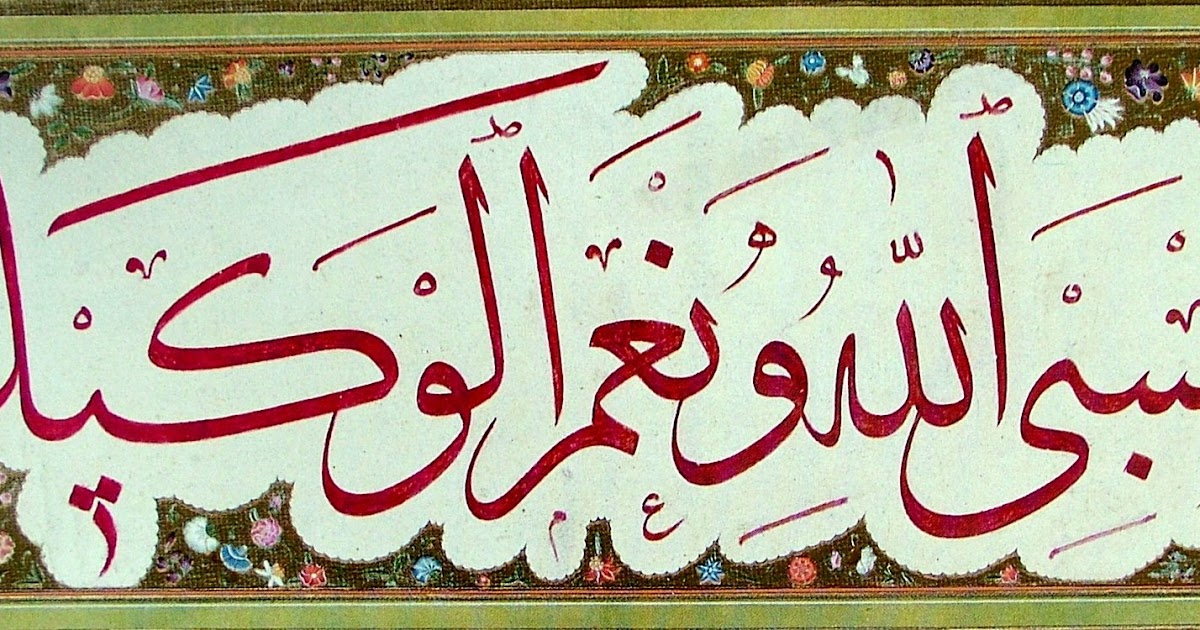 سْبِيَ اللّٰهُ وَنِعْمَ الْوَكِيلُ